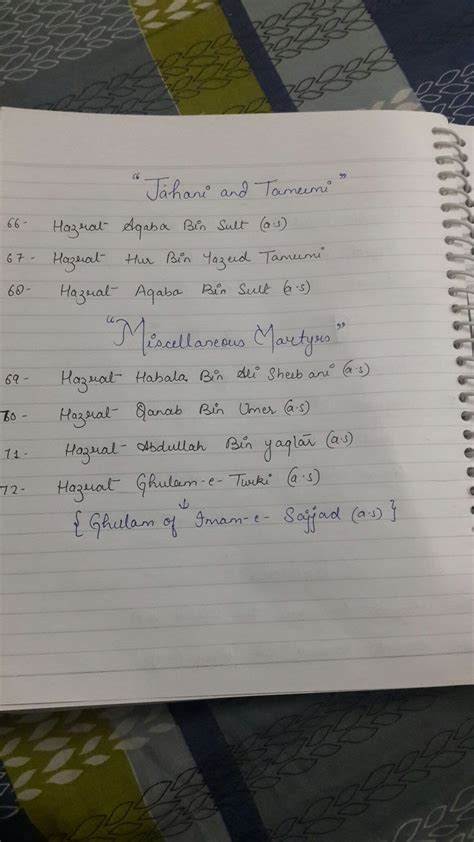 "Jahani and Tameemi"
66- Hazrat Aqaba Bin Sult (a.s)
67- Hazrat Hur Bin Yazeed Tameemi
68- Hazrat Aqaba Bin Sult (a.s)
"Miscellaneous Martyrs"
69- Hazrat Habala Bin Ali Sheebani (a.s)
70- Hazrat Qanab Bin Umer (a.s)
71- Hazrat Abdullah Bin Yaqtar (a.s)
72- Hazrat Ghulam-e-Turki (a.s)
{Ghulam of Imam-e-Sajjad (a.s)}